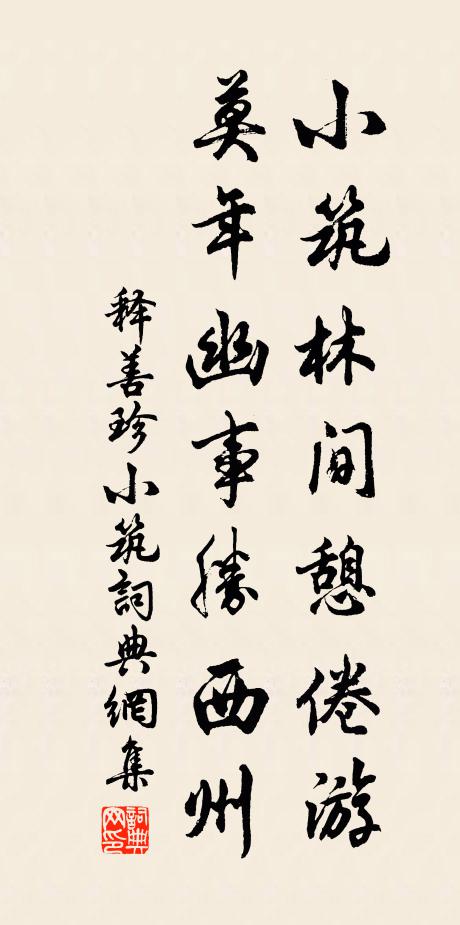 小筑林间憩倦游
莫年幽事胜西州
释善珍小筑詞典網集
詞典网印